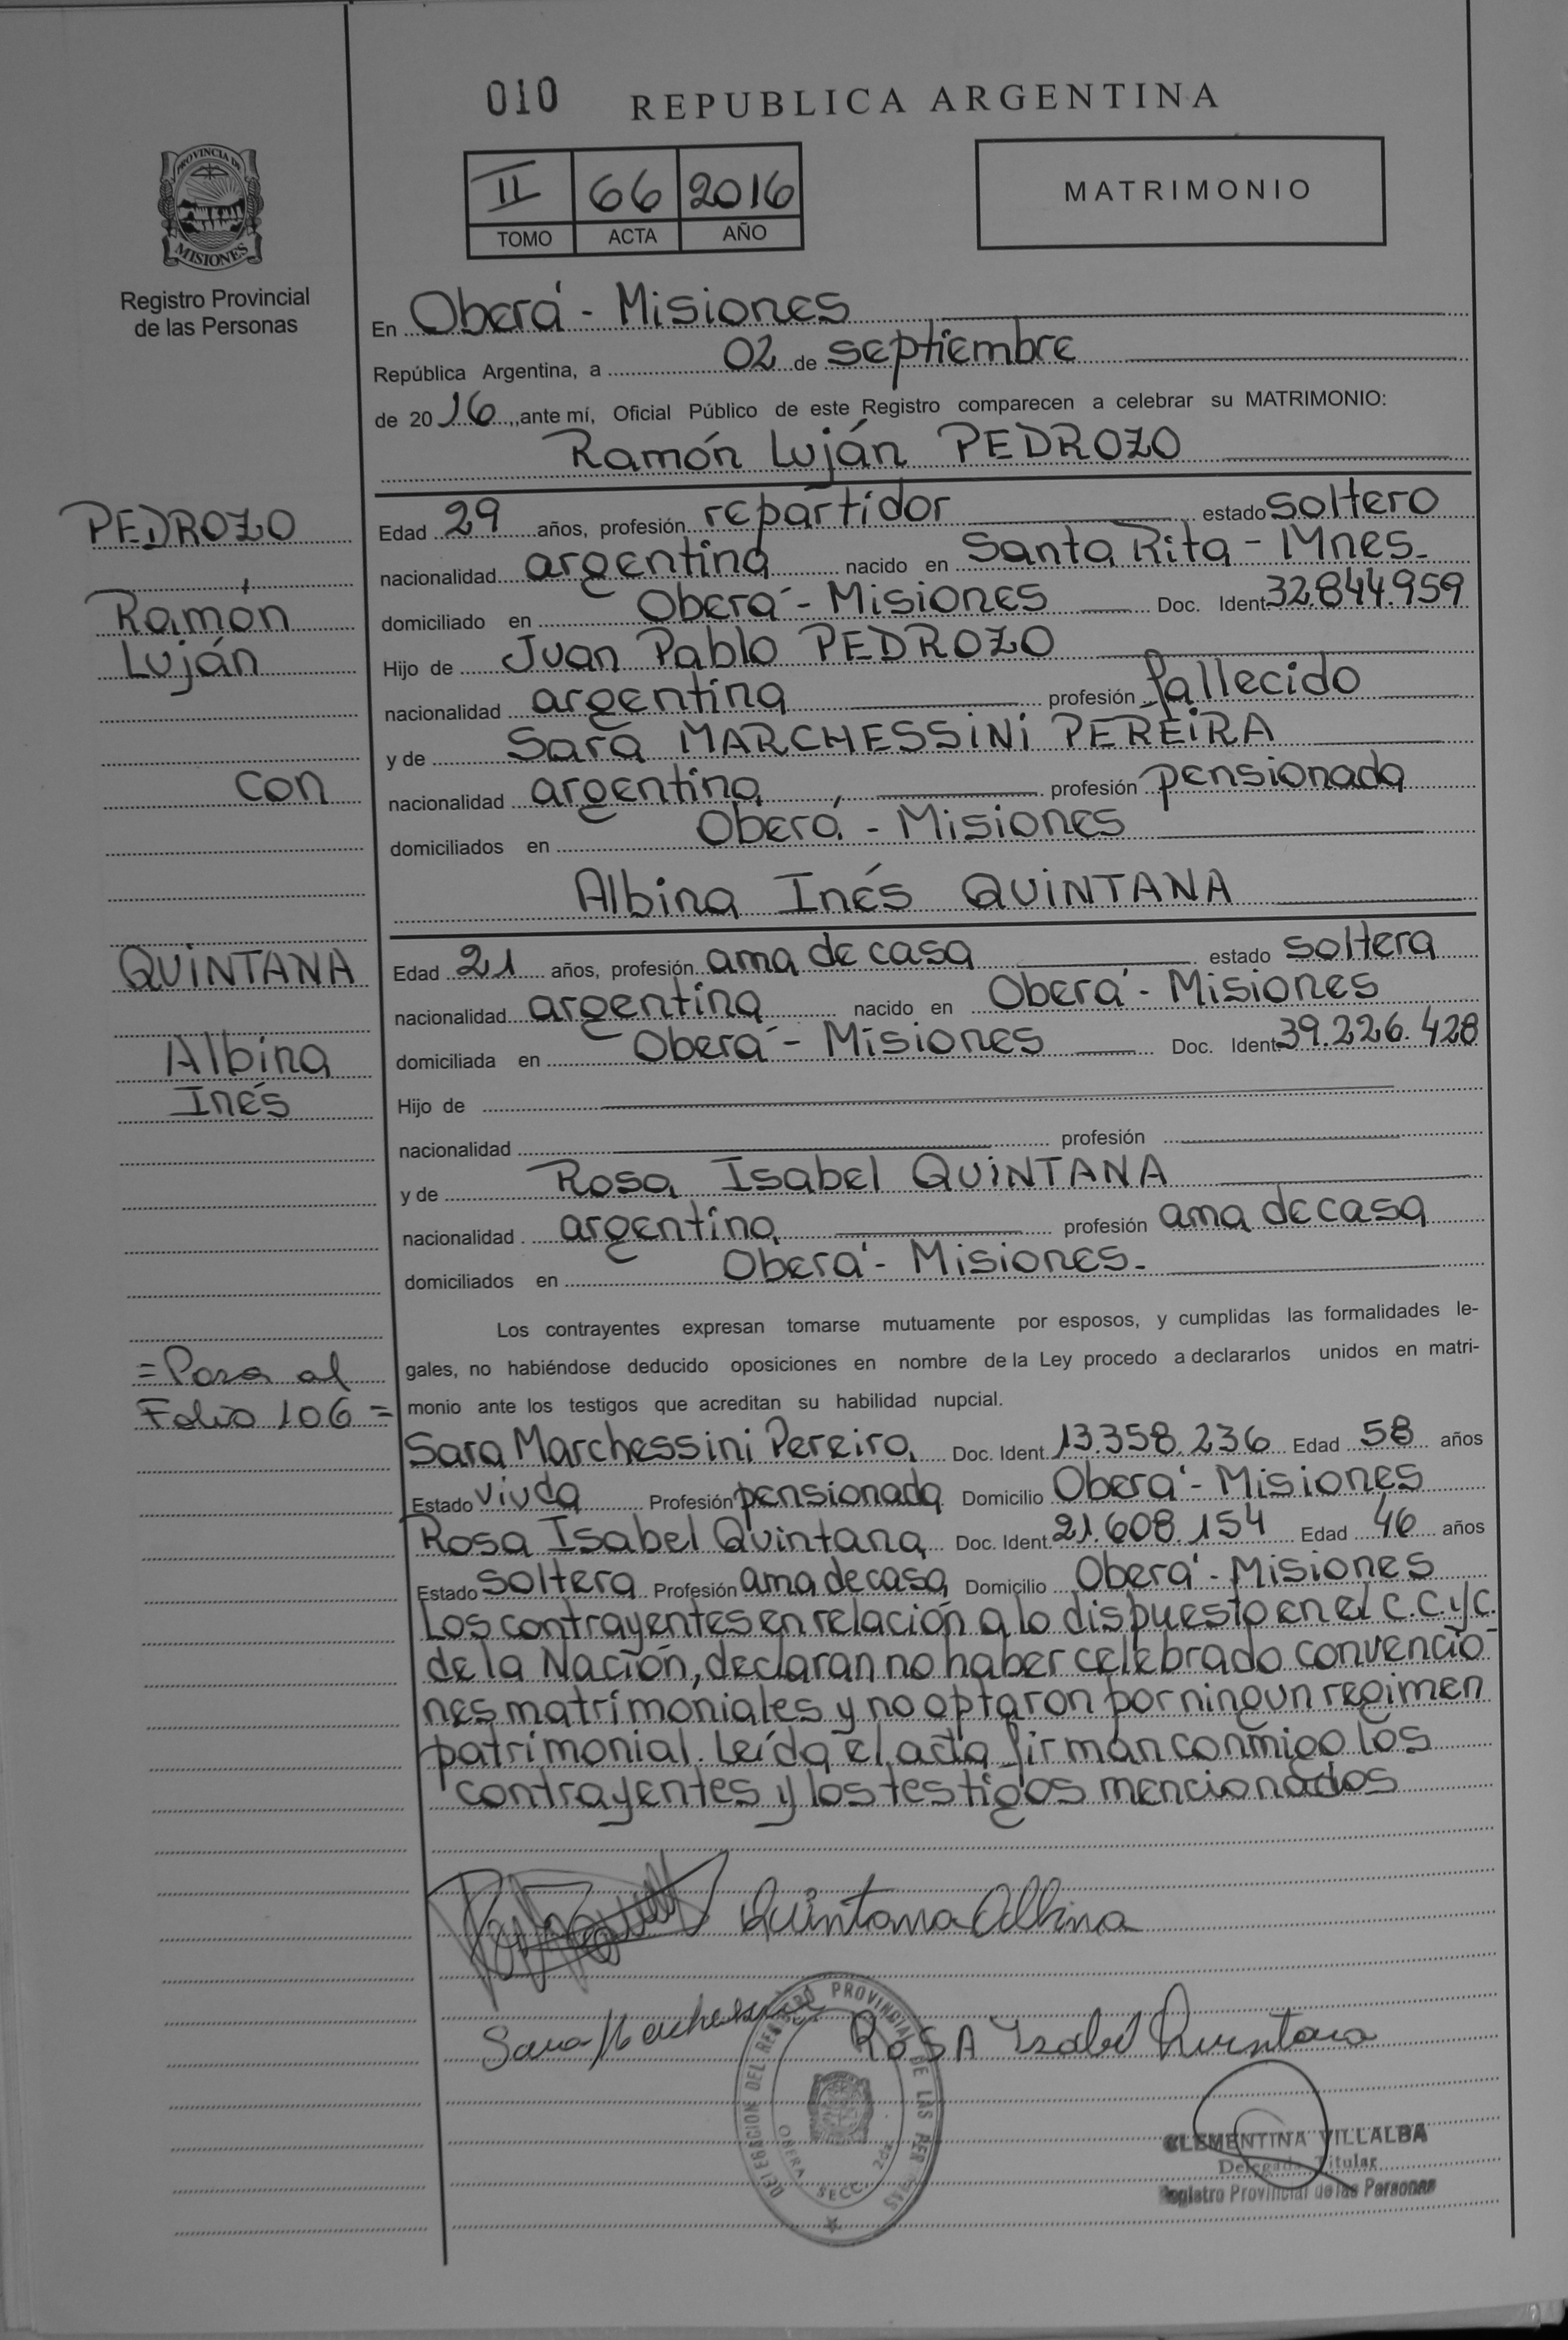 010 REPUBLICA ARGENTINA
II 66 2016
TOMO ACTA AÑO
MATRIMONIO
PROVINCIA DE
MISIONES
Registro Provincial
de las Personas
En Oberá - Misiones
República Argentina, a 02 de septiembre
de 20 16, ante mí, Oficial Público de este Registro comparecen a celebrar su MATRIMONIO:
Ramón Luján PEDROZO
PEDROZO
Ramón
Luján
con
QUINTANA
Albina
Inés
=Pasa al
Folio 106=
Edad 29 años, profesión repartidor estado soltero
nacionalidad argentina nacido en Santa Rita - Mnes.
domiciliado en Oberá - Misiones Doc. Ident. 32.844.959
Hijo de Juan Pablo PEDROZO
nacionalidad argentina profesión fallecido
y de Sara MARCHESSINI PEREIRA
nacionalidad argentina profesión pensionada
domiciliados en Oberá - Misiones
Albina Inés QUINTANA
Edad 21 años, profesión ama de casa estado soltera
nacionalidad argentina nacido en Oberá - Misiones
domiciliada en Oberá - Misiones Doc. Ident. 39.226.428
Hijo de
nacionalidad profesión
y de Rosa Isabel QUINTANA
nacionalidad argentina profesión ama de casa
domiciliados en Oberá - Misiones.
Los contrayentes expresan tomarse mutuamente por esposos, y cumplidas las formalidades le-
gales, no habiéndose deducido oposiciones en nombre de la Ley procedo a declararlos unidos en matri-
monio ante los testigos que acreditan su habilidad nupcial.
Sara Marchessini Pereira Doc. Ident. 13.358.236 Edad 58 años
Estado viuda Profesión pensionada Domicilio Oberá - Misiones
Rosa Isabel Quintana Doc. Ident. 21.608.154 Edad 46 años
Estado soltera Profesión ama de casa Domicilio Oberá - Misiones
Los contrayentes en relación a lo dispuesto en el C.C.y C.
de la Nación, declaran no haber celebrado convencio-
nes matrimoniales y no optaron por ningun regimen
patrimonial. Leída el acta firman conmigo los
contrayentes y los testigos mencionados
Quintana Albina
Sara Marchessini ROSA Isabel Quintana
DELEGACION DEL REGISTRO PROVINCIAL DE LAS PERSONAS
OBERA SECC. 2da.
CLEMENTINA VILLALBA
Delegada Titular
Registro Provincial de las Personas